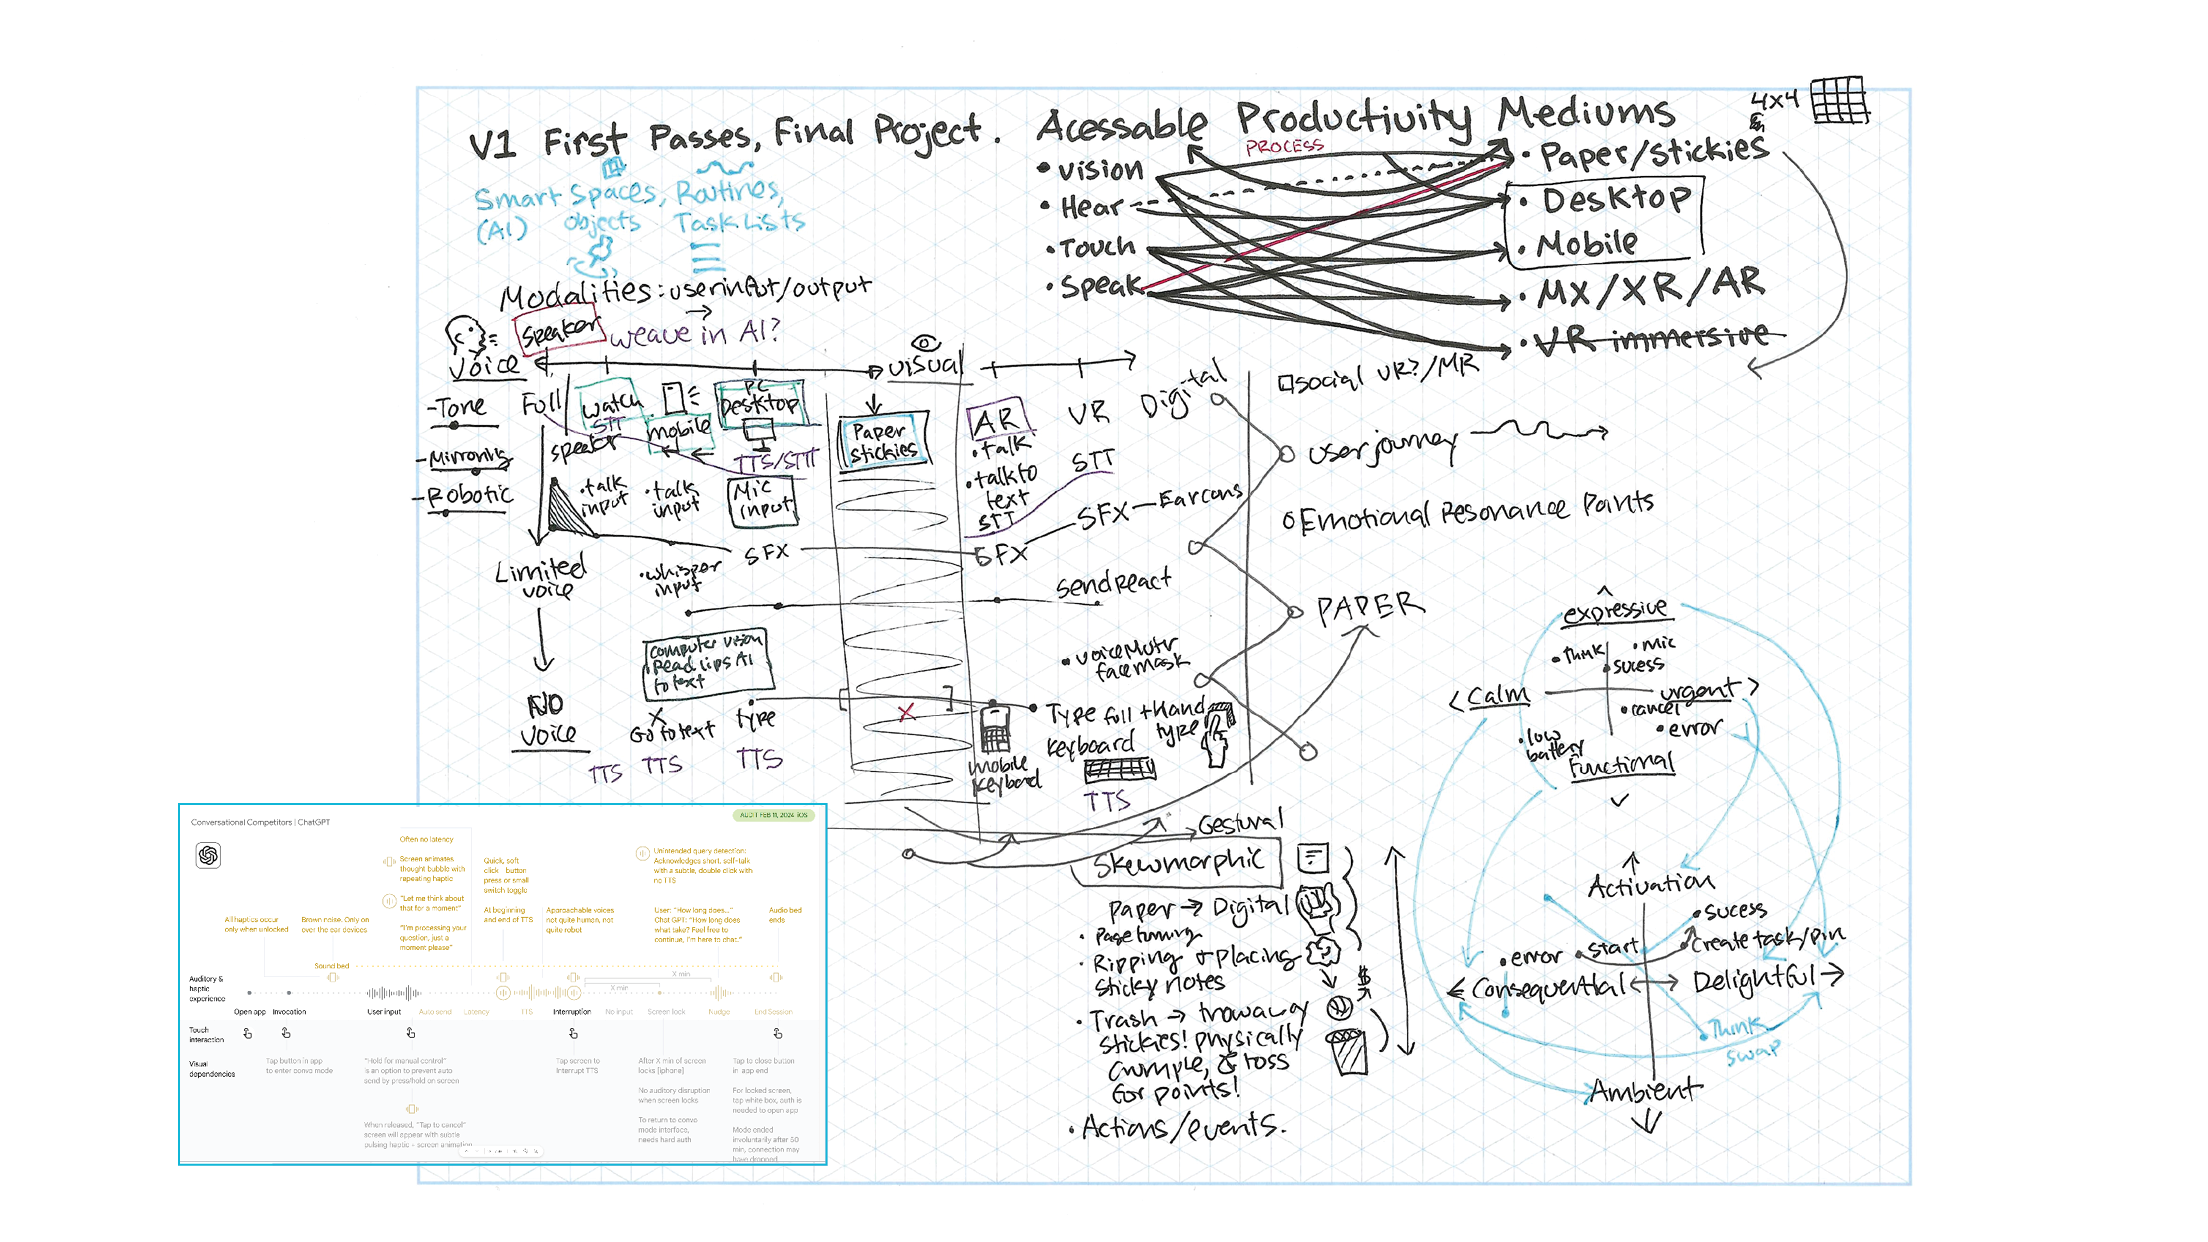 V1 First Passes, Final Project. Acessable Productivity Mediums
4x4
PROCESS
• vision
• Hear
• Touch
• Speak
• Paper/stickies
• Desktop
• Mobile
• MX/XR/AR
• VR immersive
Smart Spaces, Routines,
(AI) objects Task Lists
Modalities: userinput/output
speaker weave in AI?
Voice
visual
- Tone
- Mirroring
- Robotic
Full
watch
STT
speaker
mobile
PC
Desktop
TTS/STT
Paper
stickies
AR
• talk
• talk to
text
STT
VR
STT
Digital
• talk
input
• talk
input
Mic
input
SFX
SFX
SFX — Earcons
Limited
voice
• whisper
input
send react
computer vision
Read lips AI
to text
• voice Mutr
face mask
NO
voice
X
Go to text
type
TTS
TTS
TTS
X
mobile
keyboard
Type full + Hand
keyboard type
TTS
social VR?/MR
user journey
Emotional Resonance Points
PAPER
expressive
• Think
• mic
• sucess
< Calm
urgent >
• cancel
• error
• low
battery
Functional
Gestural
Skewmorphic
Paper → Digital
• Page turning
• Ripping + placing
sticky notes
$
• Trash → trowaway
stickies! physically
crumple, & toss
for points!
• Actions/events.
Activation
• sucess
• error
start
Create task/pin
Consequential
Delightful
• Think
swap
Ambient
Conversational Competitors | ChatGPT
AUDIT FEB 11, 2024 iOS
Often no latency
Screen animates
thought bubble with
repeating haptic
"Let me think about
that for a moment"
"I'm processing your
question, just a
moment please"
Quick, soft
click - button
press or small
switch toggle
Unintended query detection:
Acknowledges short, self-talk
with a subtle, double click with
no TTS
All haptics occur
only when unlocked
Brown noise: Only on
over the ear devices
AI beginning
and end of TTS
Approachable voices
not quite human, not
quite robot
User: "How long does..."
Chat GPT: "How long does
what take? Feel free to
continue, I'm here to chat."
Audio bed
ends
Sound bed
Auditory &
haptic
experience
X min
X min
Open app
Invocation
User input
Auto send
Latency
TTS
Interruption
No input
Screen lock
Nudge
End Session
Touch
interaction
Visual
dependencies
Tap button in app
to enter convo mode
"Hold for manual control"
is an option to prevent auto
send by press/hold on screen
When released, "Tap to cancel"
screen will appear with subtle
pulsing haptic - screen animation
Tap screen to
Interrupt TTS
After X min of screen
locks (iphone)
No auditory disruption
when screen locks
To return to convo
mode interface,
needs hard auth
Tap to close button
in-app end
For locked screen,
tap white box, auth is
needed to open app
Mode ended
involuntarily after 50
min, connection may
have dropped